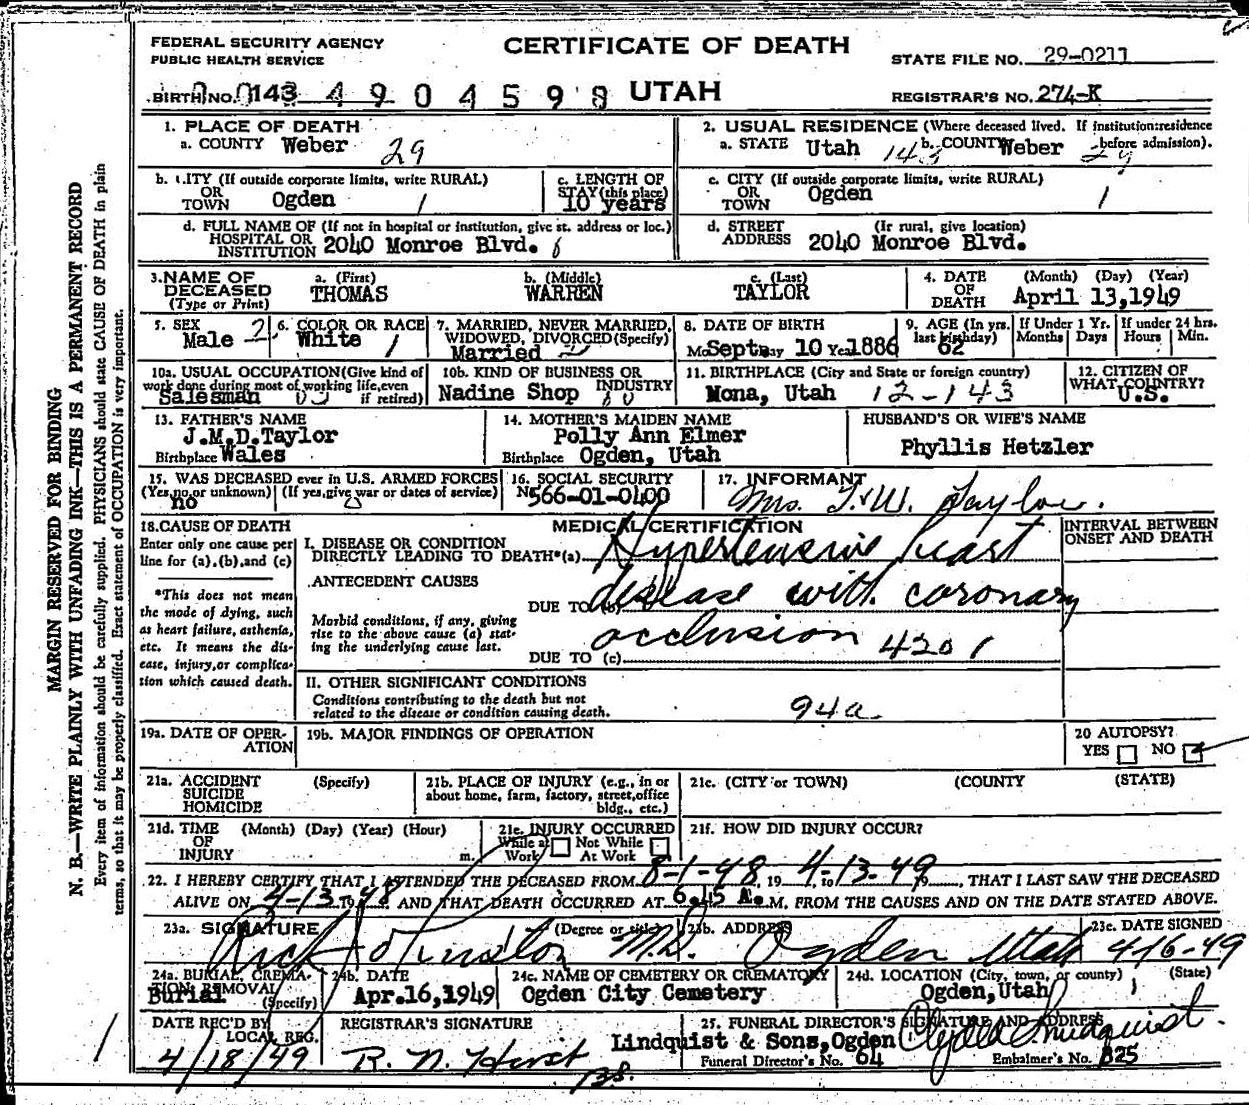 FEDERAL SECURITY AGENCY
PUBLIC HEALTH SERVICE
CERTIFICATE OF DEATH
STATE FILE NO. 29-0211
BIRTH NO. 143 4904598 UTAH
REGISTRAR'S NO. 274-K
1. PLACE OF DEATH
a. COUNTY Weber 29
2. USUAL RESIDENCE (Where deceased lived. If institution:residence before admission).
a. STATE Utah 143 b. COUNTY Weber 29
b. CITY (If outside corporate limits, write RURAL)
OR TOWN Ogden 1
c. LENGTH OF STAY (this place)
10 years
c. CITY (If outside corporate limits, write RURAL)
OR TOWN Ogden 1
d. FULL NAME OF (If not in hospital or institution, give st. address or loc.)
HOSPITAL OR INSTITUTION 2040 Monroe Blvd.
d. STREET ADDRESS (If rural, give location)
2040 Monroe Blvd.
3. NAME OF DECEASED (Type or Print)
a. (First) THOMAS
b. (Middle) WARREN
c. (Last) TAYLOR
4. DATE OF DEATH (Month) (Day) (Year)
April 13,1949
5. SEX Male 2
6. COLOR OR RACE White 1
7. MARRIED, NEVER MARRIED, WIDOWED, DIVORCED (Specify)
Married 2
8. DATE OF BIRTH
Mo Sept Day 10 Yr 1886
9. AGE (In yrs. last birthday) 62
If Under 1 Yr. Months Days
If under 24 hrs. Hours Min.
10a. USUAL OCCUPATION (Give kind of work done during most of working life, even if retired)
Salesman
10b. KIND OF BUSINESS OR INDUSTRY
Nadine Shop
11. BIRTHPLACE (City and State or foreign country)
Mona, Utah 12-143
12. CITIZEN OF WHAT COUNTRY?
U.S.
13. FATHER'S NAME
J.M.D.Taylor
Birthplace Wales
14. MOTHER'S MAIDEN NAME
Polly Ann Elmer
Birthplace Ogden, Utah
HUSBAND'S OR WIFE'S NAME
Phyllis Hetzler
15. WAS DECEASED ever in U.S. ARMED FORCES
(Yes,no,or unknown) (If yes,give war or dates of service)
no 0
16. SOCIAL SECURITY
No 566-01-0400
17. INFORMANT
Mrs. T.W. Taylor.
18. CAUSE OF DEATH
Enter only one cause per line for (a).(b),and (c)
*This does not mean the mode of dying, such as heart failure, asthenia, etc. It means the disease, injury, or complication which caused death.
MEDICAL CERTIFICATION
I. DISEASE OR CONDITION DIRECTLY LEADING TO DEATH*(a) Hypertensive heart
ANTECEDENT CAUSES
DUE TO (b) disease with coronary
Morbid conditions, if any, giving rise to the above cause (a) stating the underlying cause last.
occlusion 4201
DUE TO (c)
INTERVAL BETWEEN ONSET AND DEATH
II. OTHER SIGNIFICANT CONDITIONS
Conditions contributing to the death but not related to the disease or condition causing death.
94a
19a. DATE OF OPERATION
19b. MAJOR FINDINGS OF OPERATION
20 AUTOPSY?
YES NO
21a. ACCIDENT SUICIDE HOMICIDE (Specify)
21b. PLACE OF INJURY (e.g., in or about home, farm, factory, street,office bldg., etc.)
21c. (CITY or TOWN) (COUNTY) (STATE)
21d. TIME OF INJURY (Month) (Day) (Year) (Hour) m.
21e. INJURY OCCURRED
While at Work Not While At Work
21f. HOW DID INJURY OCCUR?
22. I HEREBY CERTIFY THAT I ATTENDED THE DECEASED FROM 8-1-48, 19 to 4-13-49, THAT I LAST SAW THE DECEASED
ALIVE ON 4-13-48, AND THAT DEATH OCCURRED AT 6.45 A. M, FROM THE CAUSES AND ON THE DATE STATED ABOVE.
23a. SIGNATURE (Degree or title) M.D.
23b. ADDRESS Ogden Utah
23c. DATE SIGNED 4-16-49
24a. BURIAL, CREMATION, REMOVAL (Specify)
Burial
24b. DATE
Apr.16,1949
24c. NAME OF CEMETERY OR CREMATORY
Ogden City Cemetery
24d. LOCATION (City, town, or county) (State)
Ogden,Utah
DATE REC'D BY LOCAL REG.
4/18/49
REGISTRAR'S SIGNATURE
R. N. Hirst
25. FUNERAL DIRECTOR'S SIGNATURE AND ADDRESS
Lindquist & Sons,Ogden Clyde Lindquist.
Funeral Director's No. 64 Embalmer's No. 325
MARGIN RESERVED FOR BINDING
N. B.—WRITE PLAINLY WITH UNFADING INK—THIS IS A PERMANENT RECORD
Every item of information should be carefully supplied. PHYSICIANS should state CAUSE OF DEATH in plain
terms, so that it may be properly classified. Exact statement of OCCUPATION is very important.